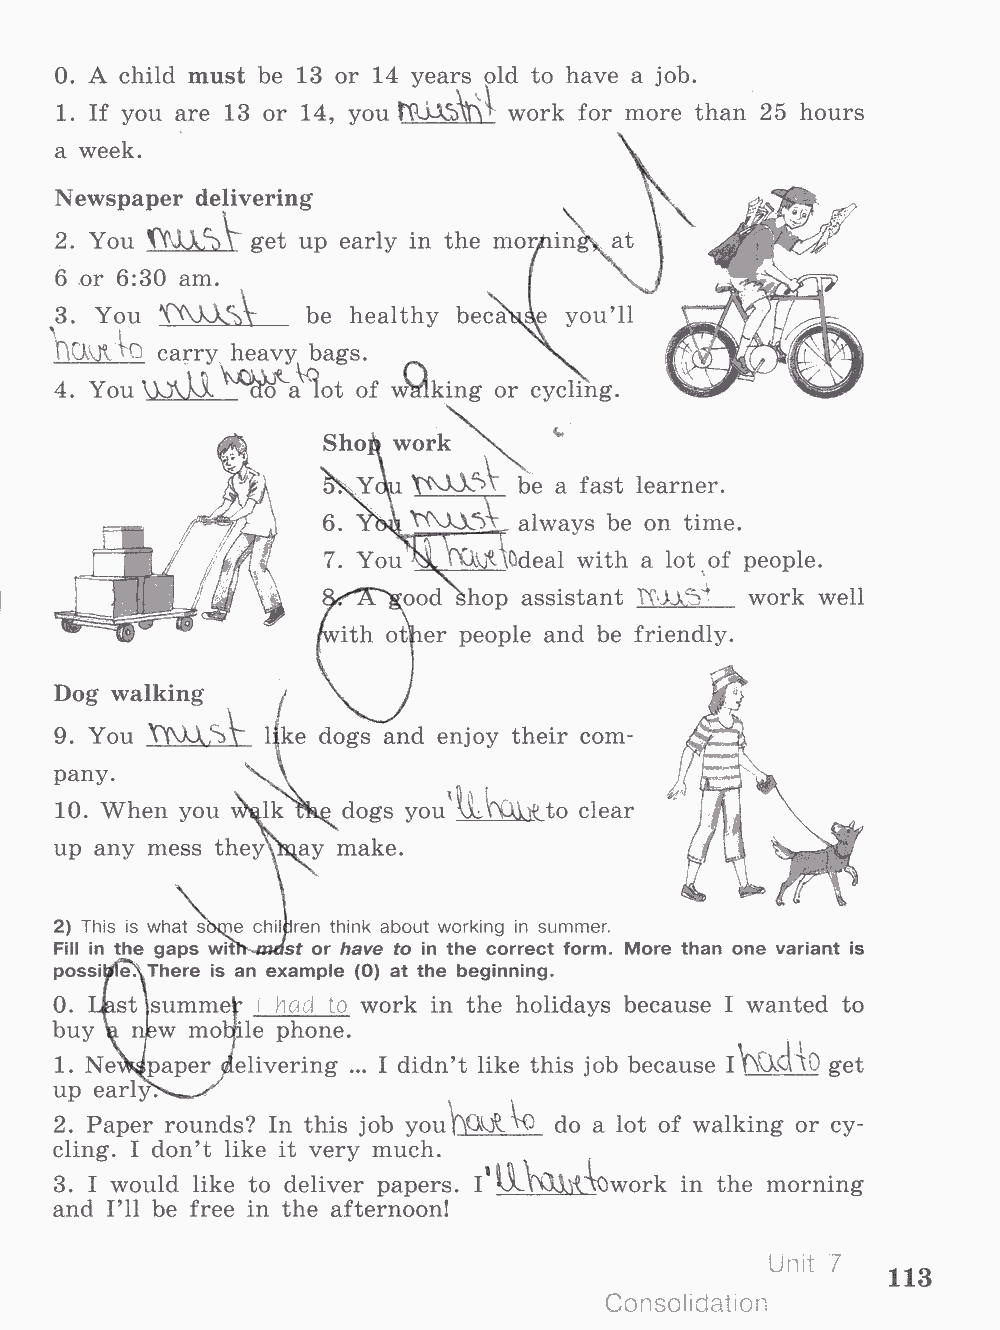 0. A child must be 13 or 14 years old to have a job.
1. If you are 13 or 14, you mustn't work for more than 25 hours
a week.
Newspaper delivering
2. You must get up early in the morning, at
6 or 6:30 am.
3. You must be healthy because you'll
have to carry heavy bags.
4. You will have to do a lot of walking or cycling.
Shop work
5. You must be a fast learner.
6. You must always be on time.
7. You 'll have to deal with a lot of people.
8. A good shop assistant must work well
with other people and be friendly.
Dog walking
9. You must like dogs and enjoy their com-
pany.
10. When you walk the dogs you 'll have to clear
up any mess they may make.
2) This is what some children think about working in summer.
Fill in the gaps with must or have to in the correct form. More than one variant is
possible. There is an example (0) at the beginning.
0. Last summer I had to work in the holidays because I wanted to
buy a new mobile phone.
1. Newspaper delivering ... I didn't like this job because I had to get
up early.
2. Paper rounds? In this job you have to do a lot of walking or cy-
cling. I don't like it very much.
3. I would like to deliver papers. I 'll have to work in the morning
and I'll be free in the afternoon!
Unit 7
113
Consolidation